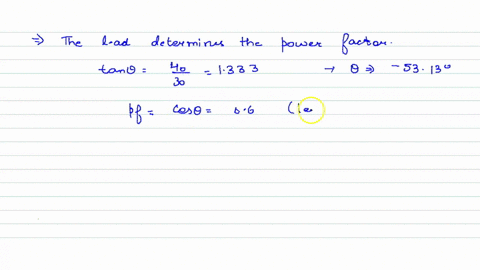 ⇒ The load determines the power factor.
tanθ = 40/30 = 1.333 → θ ⇒ -53.13°
pf = cosθ = 0.6 (le